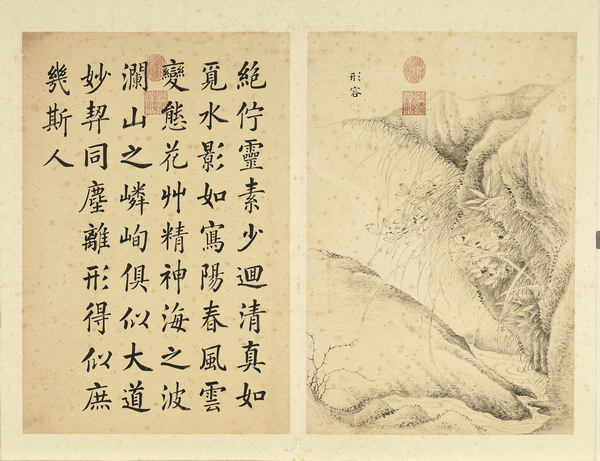 形容
絕佇靈素少迴清真如
覓水影如寫陽春風雲
變態花艸精神海之波
瀾山之嶙峋俱似大道
妙契同塵離形得似庶
幾斯人